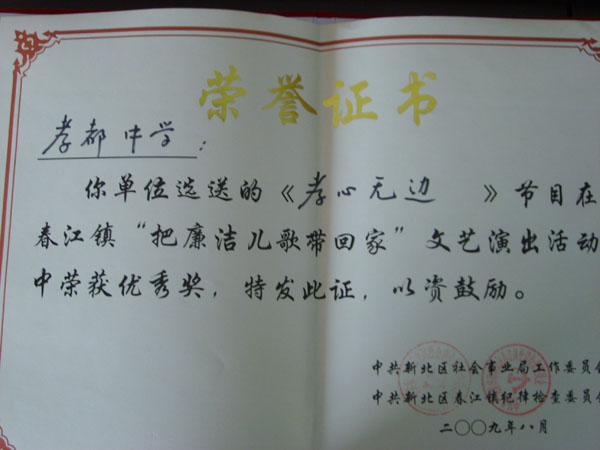 荣誉证书
孝都中学：
你单位选送的《孝心无边》节目在
春江镇“把廉洁儿歌带回家”文艺演出活动
中荣获优秀奖，特发此证，以资鼓励。
中共新北区社会事业局工作委员会
中共新北区春江镇纪律检查委员会
二〇〇九年八月